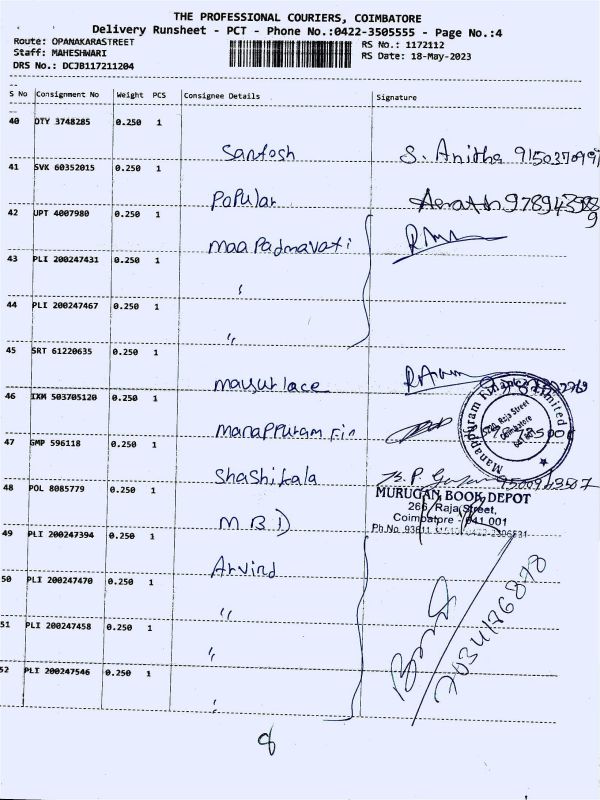 THE PROFESSIONAL COURIERS, COIMBATORE
Delivery Runsheet - PCT - Phone No.:0422-3505555 - Page No.:4
Route: OPANAKARASTREET
RS No.: 1172112
Staff: MAHESHWARI
RS Date: 18-May-2023
DRS No.: DCJB117211204
S No Consignment No Weight PCS Consignee Details Signature
40 DTY 3748285 0.250 1
Santosh S. Anitha 9150370997
41 SVK 60352015 0.250 1
Popular
42 UPT 4007980 0.250 1
Maa Padmavati
43 PLI 200247431 0.250 1
"
44 PLI 200247467 0.250 1
"
45 SRT 61220635 0.250 1
maysur lace
46 IXM 503705120 0.250 1
Manappuram Fin
Manappuram Finance Limited
Raja Street
Coimbatore
47 GMP 596118 0.250 1
Shashikala
48 POL 8085779 0.250 1
M.B.D
MURUGAN BOOK DEPOT
266, Raja Street,
Coimbatore - 641 001
Ph.No.
49 PLI 200247394 0.250 1
Arvind
50 PLI 200247470 0.250 1
"
51 PLI 200247458 0.250 1
"
52 PLI 200247546 0.250 1
"
7034176878
8